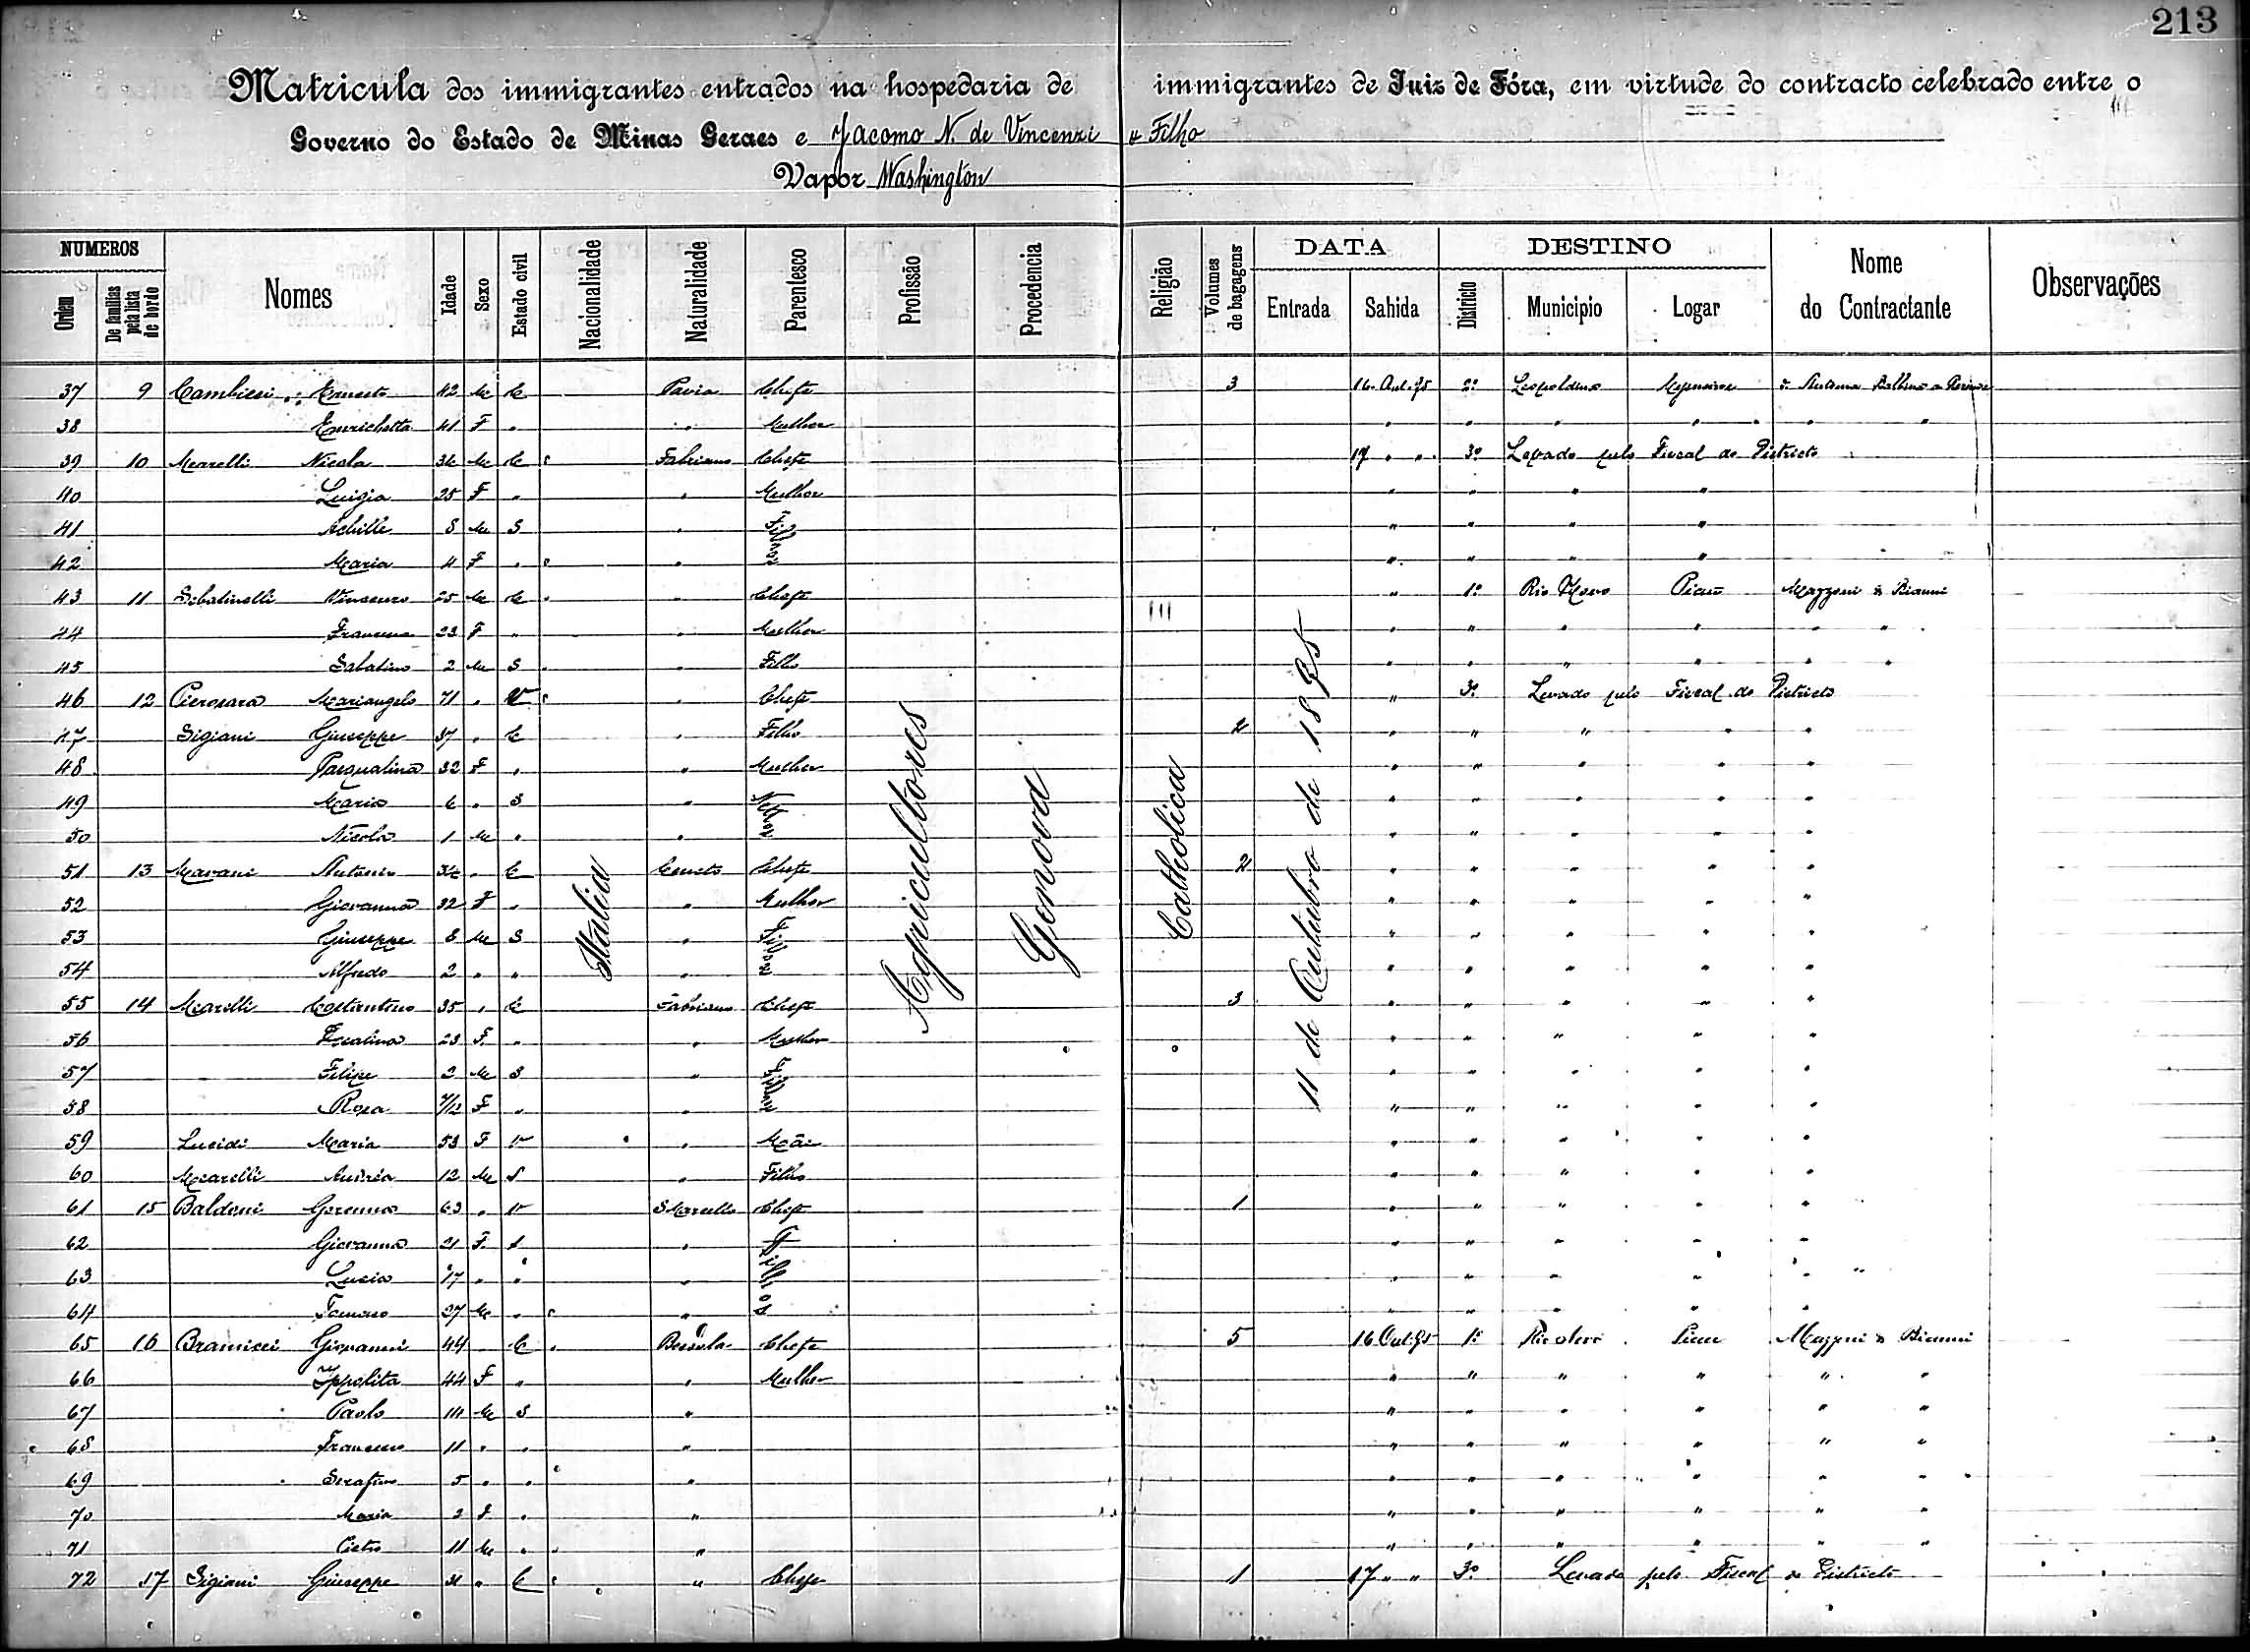 213
Matricula dos immigrantes entrados na hospedaria de immigrantes de Juiz de Fóra, em virtude do contracto celebrado entre o
Governo do Estado de Minas Geraes e Jacomo N. de Vincenzi & Filho
Vapor Washington
NUMEROS Nomes Idade Sexo Estado civil Nacionalidade Naturalidade Parentesco Profissão Procedencia Religião Volumes de bagagens DATA DESTINO Nome do Contractante Observações
Ordem De familias pela lista de bordo Entrada Sahida Districto Municipio Logar
Italia
Agricultores
Genova
Catholica
11 de Outubro de 1895
37 9 Cambieri Ernesto 42 M C Pavia Chefe 3 16 Out. 95 2º Leopoldina
38 Enrichetta 41 F " " Mulher " " " " " "
39 10 Marelli Nicola 34 M C Fabriano Chefe 17 " " 3º Levado pelo Fiscal do Districto
40 Luigia 25 F " " Mulher " " " "
41 Achille 8 M S " Filhos " " " "
42 Maria 4 F " " " " " "
43 11 Vincenzo 25 M C " Chefe " 1º Rio Novo Piau Mazzoni & Bianni
44 23 F " " Mulher " " " " " "
45 Sabatino 2 M S " Filho " " " " " "
46 12 Pierosara Mariangelo 71 " V " Chefe " 3º Levado pelo Fiscal do Districto
47 Sigiani Giuseppe 37 " C " Filho 2 " " " " "
48 Pasqualina 32 F " " Mulher " " " " "
49 Maria 6 " S " Netos " " " " "
50 Nicola 1 M " " " " " " "
51 13 Mavani Antonio 34 " C Chefe 2 " " " " "
52 Giovanna 32 F " " Mulher " " " " "
53 Giuseppe 8 M S " Filhos " " " " "
54 Alfredo 2 " " " " " " " "
55 14 Marelli Costantino 35 " C Fabriano Chefe 3 " " " " "
56 23 F " " Mulher " " " " "
57 Filipe 2 M S " Filhos " " " " "
58 Rosa 7/12 F " " " " " " "
59 Lucidi Maria 53 F V " Mãe " " " " "
60 Marelli Andréa 12 M S " Filho " " " " "
61 15 Baldoni 63 " V S Marcello Chefe 1 " " " " "
62 Giovanna 21 F S " Filhos " " " " "
63 Lucia 17 " " " " " " " " "
64 27 M " " " " " " "
65 16 Giovanni 44 C Chefe 5 16 Out. 95 1º Rio Novo Piau Mazzoni & Bianni
66 Ippolita 44 F " " Mulher " " " " " "
67 Paolo 14 M S " " " " " " "
68 Francesco 11 " " " " " " " " "
69 Serafino 5 " " " " " " " " "
70 Maria 2 F " " " " " " " "
71 Pietro 11 M " " " " " " " "
72 17 Sigiani Giuseppe 31 " C " Chefe 1 17 " " 3º Levado pelo Fiscal do Districto